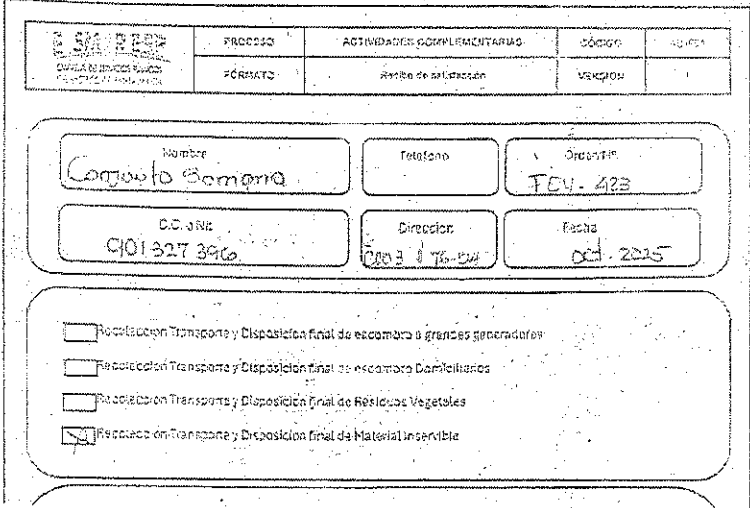 PROCESO ACTIVIDADES COMPLEMENTARIAS CÓDIGO
FORMATO Recibo de satisfacción VERSION 1
Nombre Telefono Orden
Conjunto FEV-423
C.C. o Nit Direccion Fecha
901327396 76-54 oct. 2025
Recoleccion Transporte y Disposicion final de escombro a grandes generadores
Recoleccion Transporte y Disposicion final de escombro Domiciliarios
Recoleccion Transporte y Disposicion final de Residuos Vegetales
Recoleccion Transporte y Disposicion final de Material Inservible